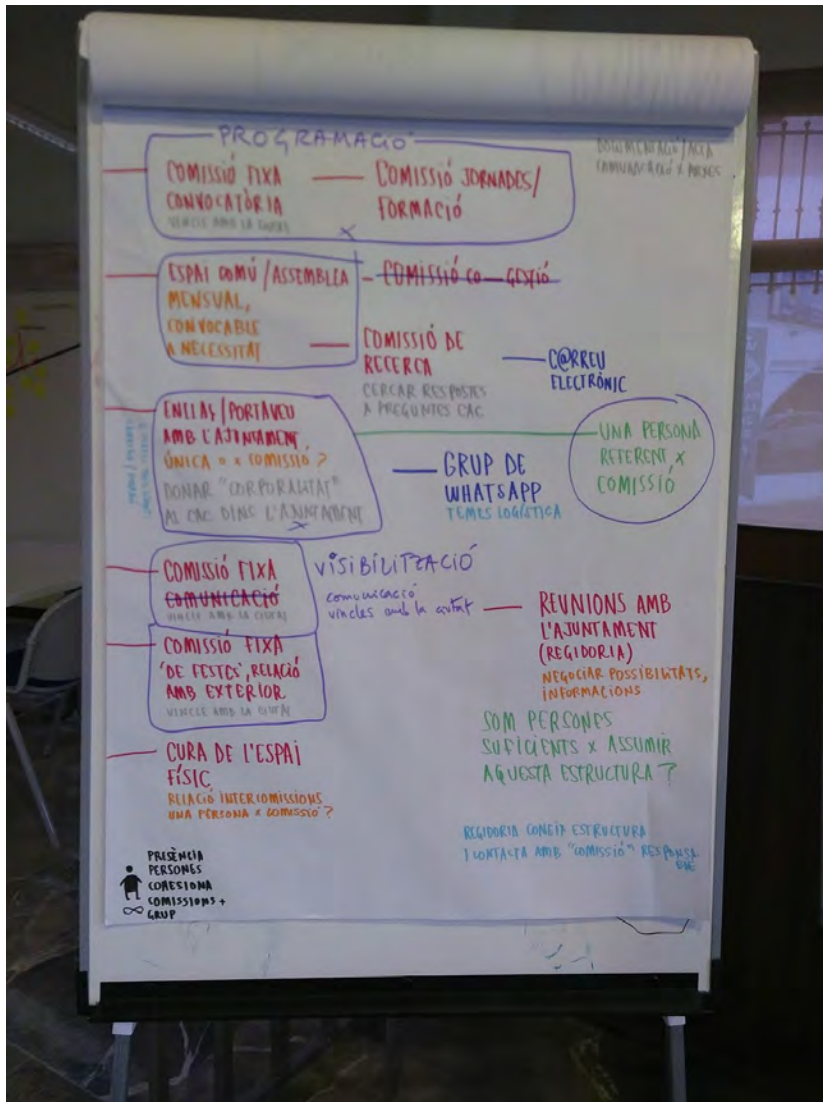 PROGRAMACIÓ
COMISSIÓ FIXA
CONVOCATÒRIA
VINCLE AMB LA CIUTAT
COMISSIÓ JORNADES/
FORMACIÓ
DOCUMENTACIÓ/ACTA
COMUNICACIÓ X XARXES
ESPAI COMÚ/ASSEMBLEA
MENSUAL,
CONVOCABLE
A NECESSITAT
COMISSIÓ CO-GESTIÓ
COMISSIÓ DE
RECERCA
CERCAR RESPOSTES
A PREGUNTES CAC
C@RREU
ELECTRÒNIC
ENLLAÇ/PORTAVEU
AMB L'AJUNTAMENT
ÚNICA o x COMISSIÓ?
DONAR "CORPORALITAT"
AL CAC DINS L'AJUNTAMENT
GRUP DE
WHATSAPP
TEMES LOGÍSTICA
UNA PERSONA
REFERENT X
COMISSIÓ
COMISSIÓ FIXA
COMUNICACIÓ
VINCLE AMB LA CIUTAT
VISIBILITZACIÓ
comunicació
vincles amb la ciutat
COMISSIÓ FIXA
'DE FESTES', RELACIÓ
AMB EXTERIOR
VINCLE AMB LA CIUTAT
REUNIONS AMB
L'AJUNTAMENT
(REGIDORIA)
NEGOCIAR POSSIBILITATS,
INFORMACIONS
CURA DE L'ESPAI
FÍSIC
RELACIÓ INTERCOMISSIONS
UNA PERSONA X COMISSIÓ?
SOM PERSONES
SUFICIENTS X ASSUMIR
AQUESTA ESTRUCTURA?
REGIDORIA CONEIX ESTRUCTURA
I CONTACTA AMB "COMISSIÓ" RESPONSA
BLE
PRESÈNCIA
PERSONES
COHESIONA
COMISSIONS +
GRUP